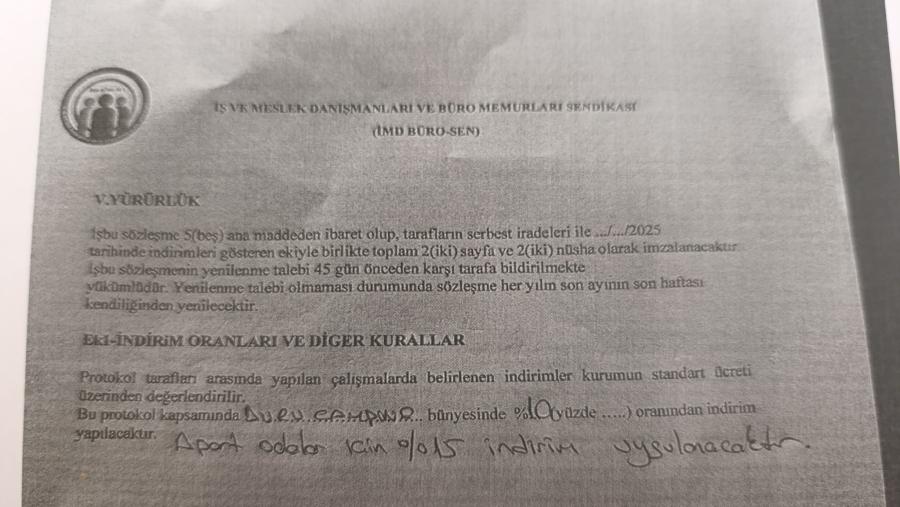 İŞ VE MESLEK DANIŞMANLARI VE BÜRO MEMURLARI SENDİKASI
(İMD BÜRO-SEN)
V.YÜRÜRLÜK
İşbu sözleşme 5(beş) ana maddeden ibaret olup, tarafların serbest iradeleri ile .../.../2025
tarihinde indirimleri gösteren ekiyle birlikte toplam 2(iki) sayfa ve 2(iki) nüsha olarak imzalanacaktır.
İşbu sözleşmenin yenilenme talebi 45 gün önceden karşı tarafa bildirilmekte
yükümlüdür. Yenilenme talebi olmaması durumunda sözleşme her yılın son ayının son haftası
kendiliğinden yenilecektir.
EK1-İNDİRİM ORANLARI VE DİĞER KURALLAR
Protokol tarafları arasında yapılan çalışmalarda belirlenen indirimler kurumun standart ücreti
üzerinden değerlendirilir.
Bu protokol kapsamında bünyesinde %10(yüzde .....) oranından indirim
yapılacaktır.
Apart odalar için %15 indirim uygulanacaktır.